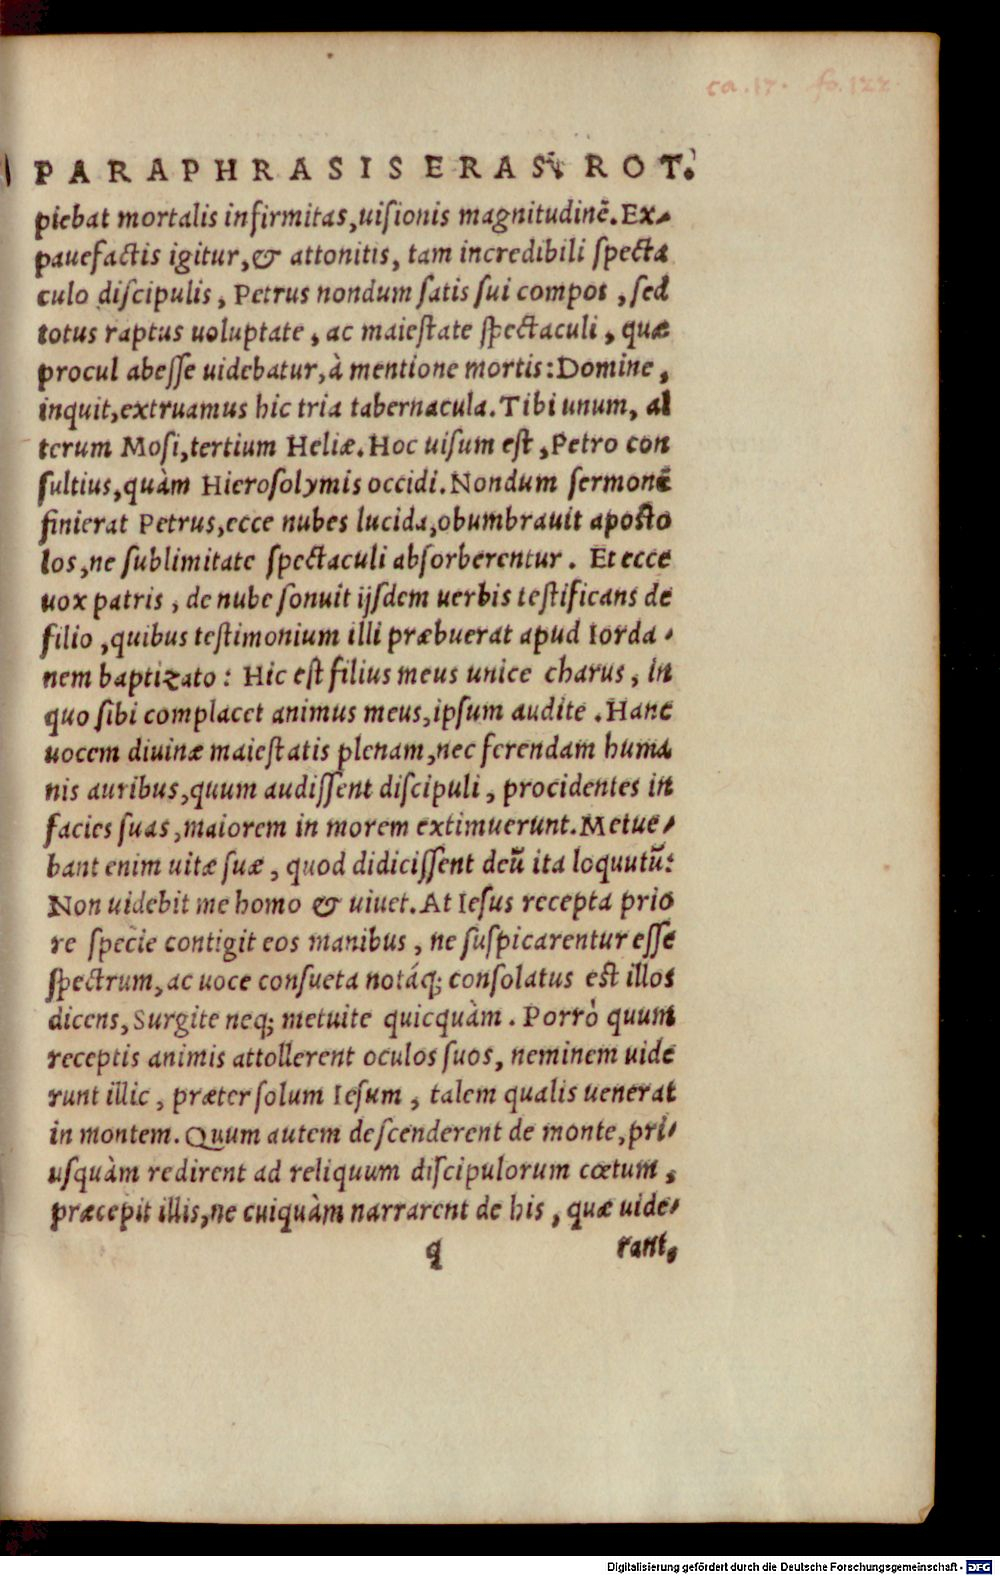 ca. 17. fo. 122
PARAPHRASIS ERAS. ROT.
piebat mortalis infirmitas, uisionis magnitudinē. Ex-
pauefactis igitur, & attonitis, tam incredibili specta
culo discipulis, Petrus nondum satis sui compos, sed
totus raptus uoluptate, ac maiestate spectaculi, quæ
procul abesse uidebatur, à mentione mortis: Domine,
inquit, extruamus hic tria tabernacula. Tibi unum, al
terum Mosi, tertium Heliæ. Hoc uisum est, Petro con
sultius, quàm Hierosolymis occidi. Nondum sermonē
finierat Petrus, ecce nubes lucida, obumbrauit aposto
los, ne sublimitate spectaculi absorberentur. Et ecce
uox patris, de nube sonuit ijsdem uerbis testificans de
filio, quibus testimonium illi præbuerat apud Iorda-
nem baptizato: Hic est filius meus unice charus, in
quo sibi complacet animus meus, ipsum audite. Hanc
uocem diuinæ maiestatis plenam, nec ferendam huma
nis auribus, quum audissent discipuli, procidentes in
facies suas, maiorem in morem extimuerunt. Metue-
bant enim uitæ suæ, quod didicissent deū ita loquutū:
Non uidebit me homo & uiuet. At Iesus recepta prio
re specie contigit eos manibus, ne suspicarentur esse
spectrum, ac uoce consueta notáq; consolatus est illos
dicens, Surgite neq; metuite quicquàm. Porrò quum
receptis animis attollerent oculos suos, neminem uide
runt illic, præter solum Iesum, talem qualis uenerat
in montem. Quum autem descenderent de monte, pri-
usquàm redirent ad reliquum discipulorum cœtum,
præcepit illis, ne cuiquàm narrarent de his, quæ uide-
q rant,
Digitalisierung gefördert durch die Deutsche Forschungsgemeinschaft - DFG